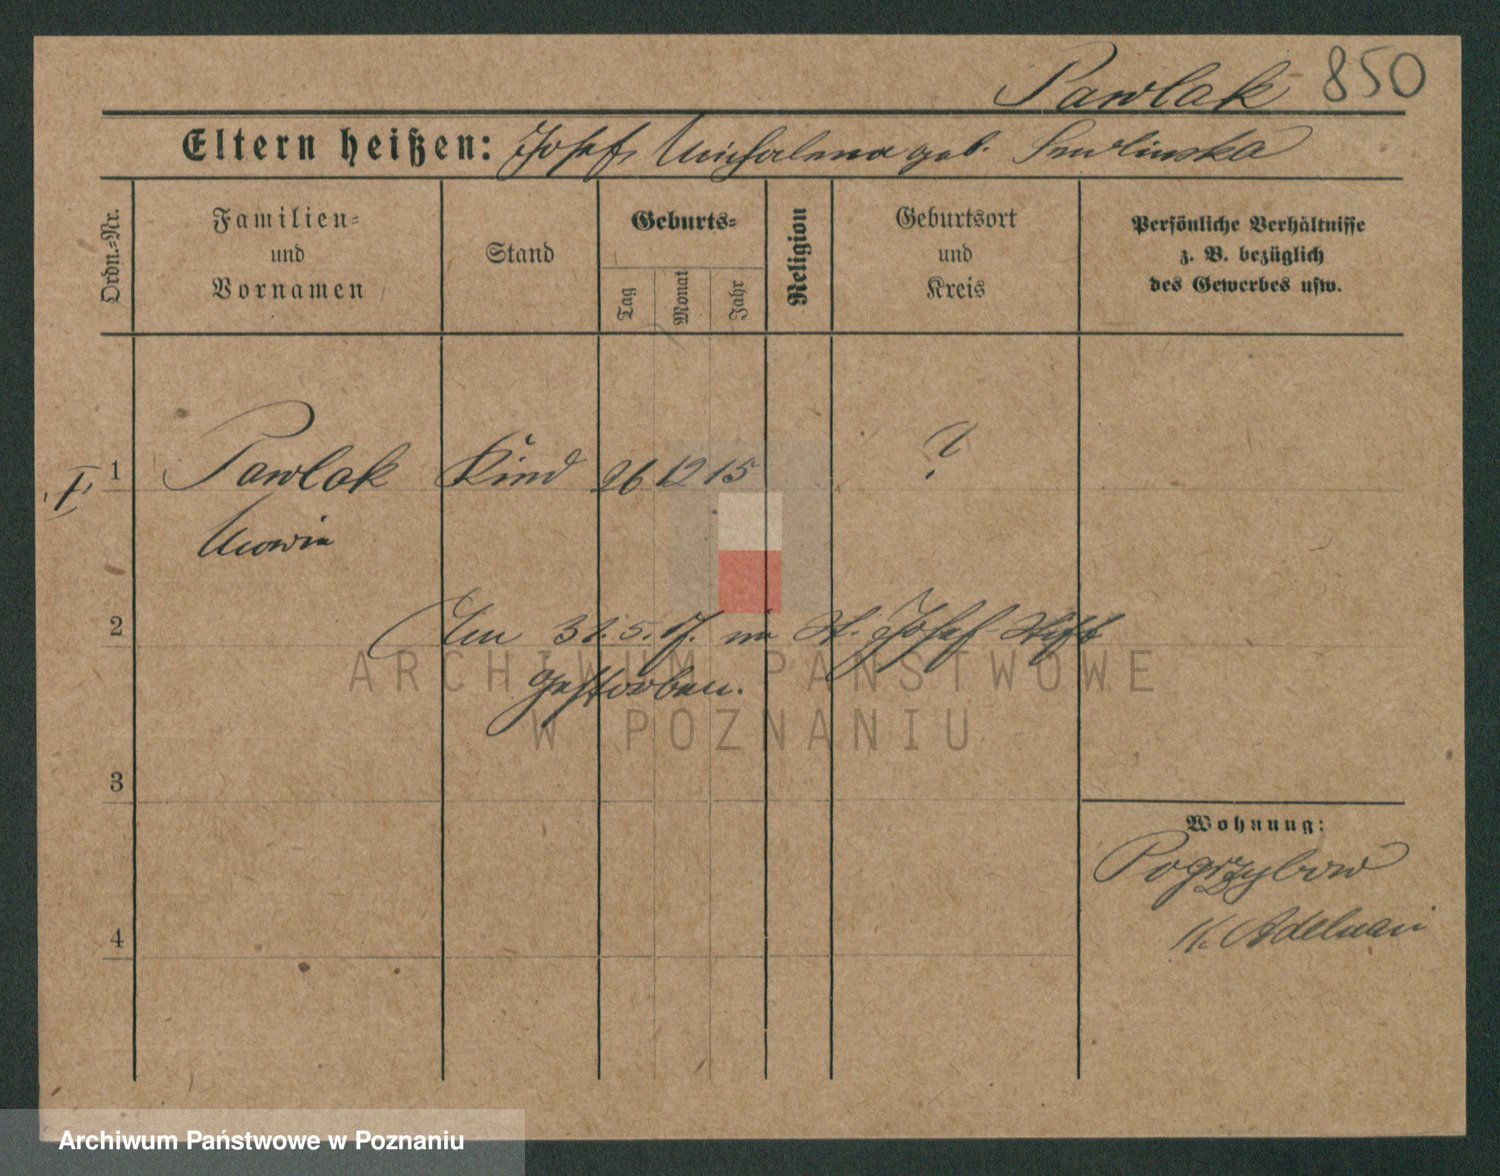 Pawlak 850
Eltern heißen: Josef, Michalina geb. Smolinska
Ordn.=Nr.
Familien=
und
Vornamen
Stand
Geburts=
Tag
Monat
Jahr
Religion
Geburtsort
und
Kreis
Persönliche Verhältnisse
z. B. bezüglich
des Gewerbes usw.
1 Pawlak Kind 26 12 15 ?
Maria
2 Am 31.5.17. im St. Josef Stift
gestorben.
3
4
Wohnung:
Pogrzybow
K. Adelnau
ARCHIWUM PAŃSTWOWE
W POZNANIU
Archiwum Państwowe w Poznaniu